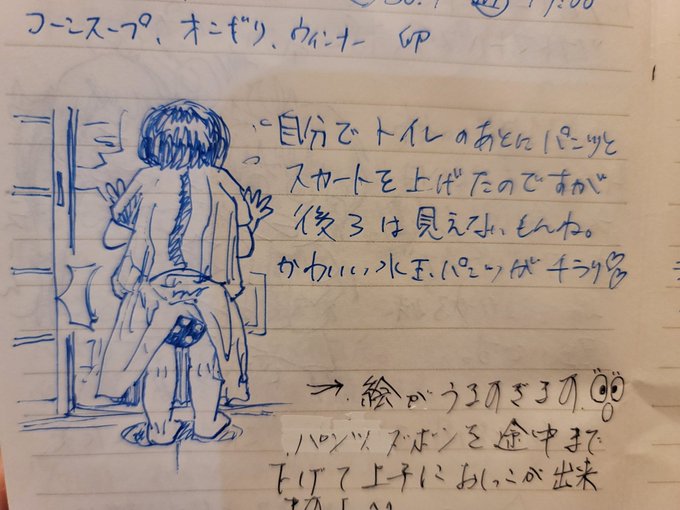 19:00
コーンスープ、オニギリ、ウィンナー 卵
自分でトイレのあとにパンツと
スカートを上げたのですが
後ろは見えないもんね。
かわいい水玉パンツがチラリ♡
→ 絵が
パンツ、ズボンを途中まで
下げて上手におしっこが出来